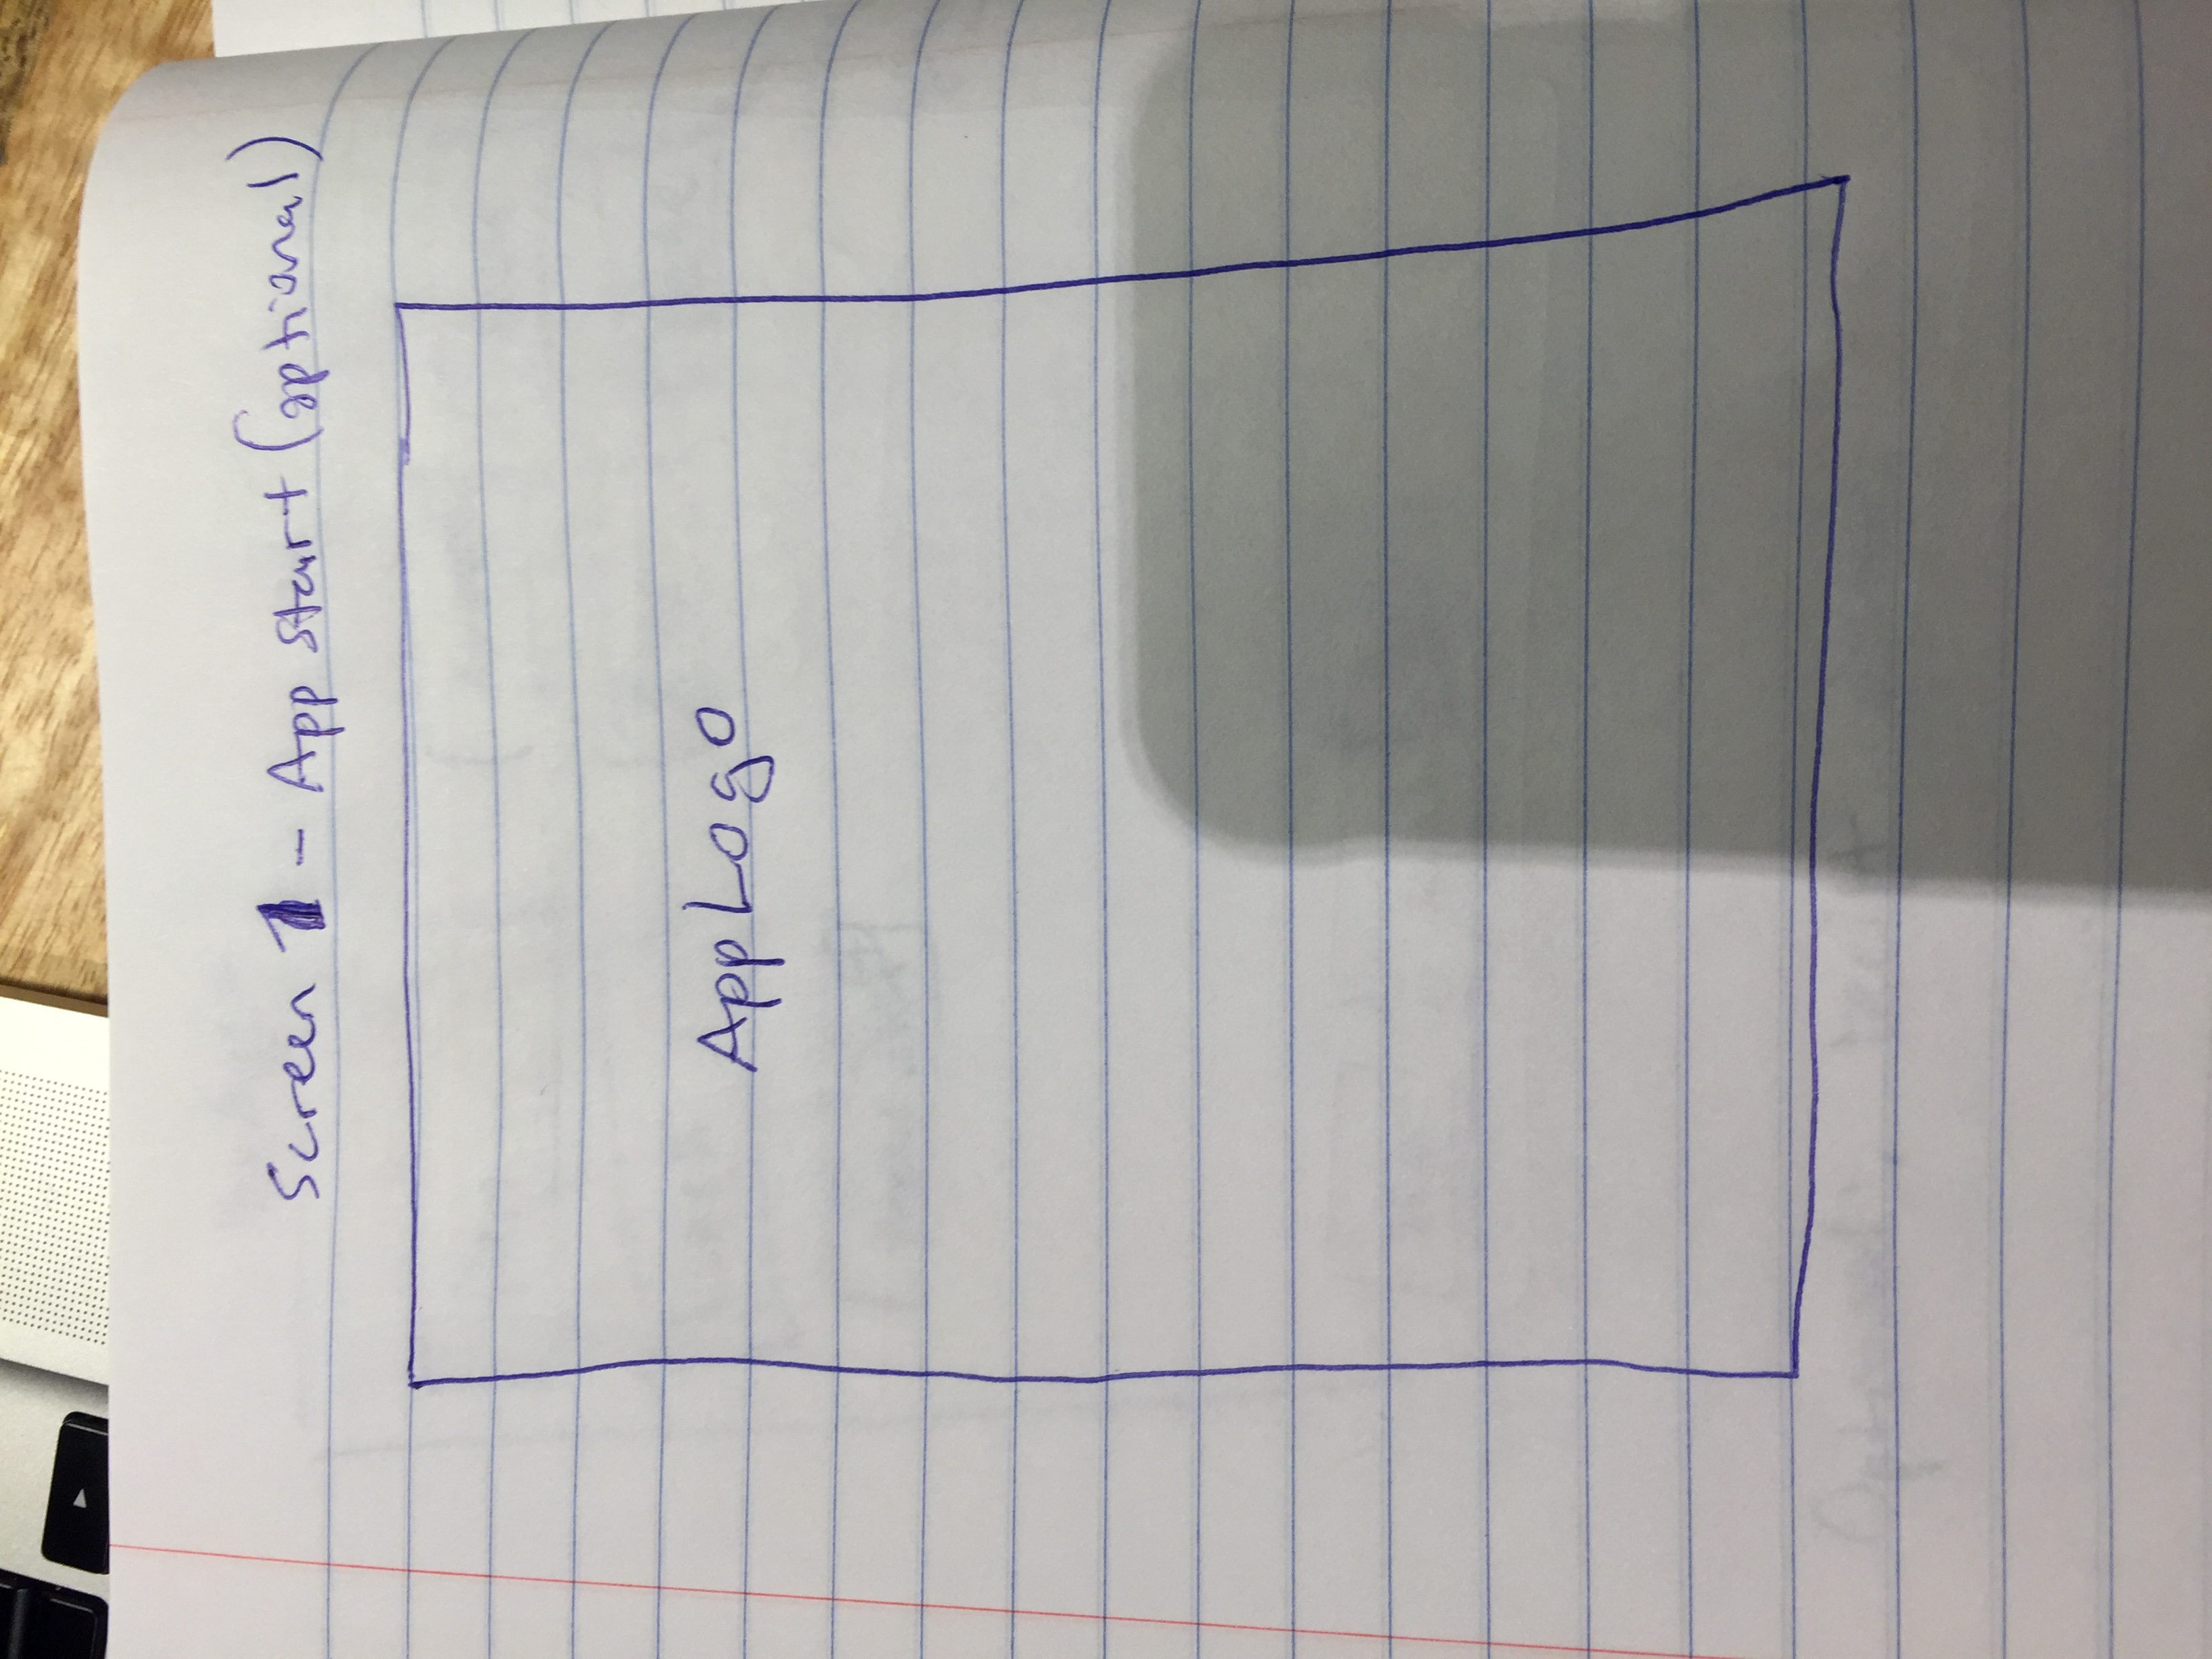 Screen 1 - App start (optional)
App Logo